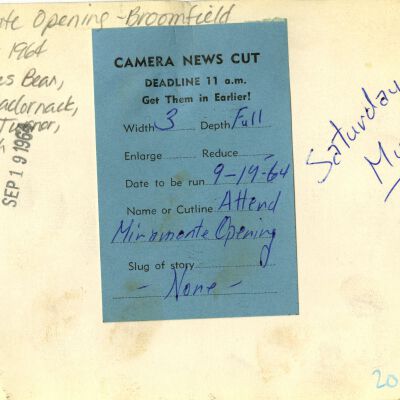 te Opening - Broomfield
1964
es Bean,
Turnor,
SEP 19 1964
CAMERA NEWS CUT
DEADLINE 11 a.m.
Get Them in Earlier!
Width 3 Depth Full
Enlarge Reduce -
Date to be run 9-19-64
Name or Cutline Attend
Miramonte Opening
Slug of story
- None -
Saturday
Mu
20